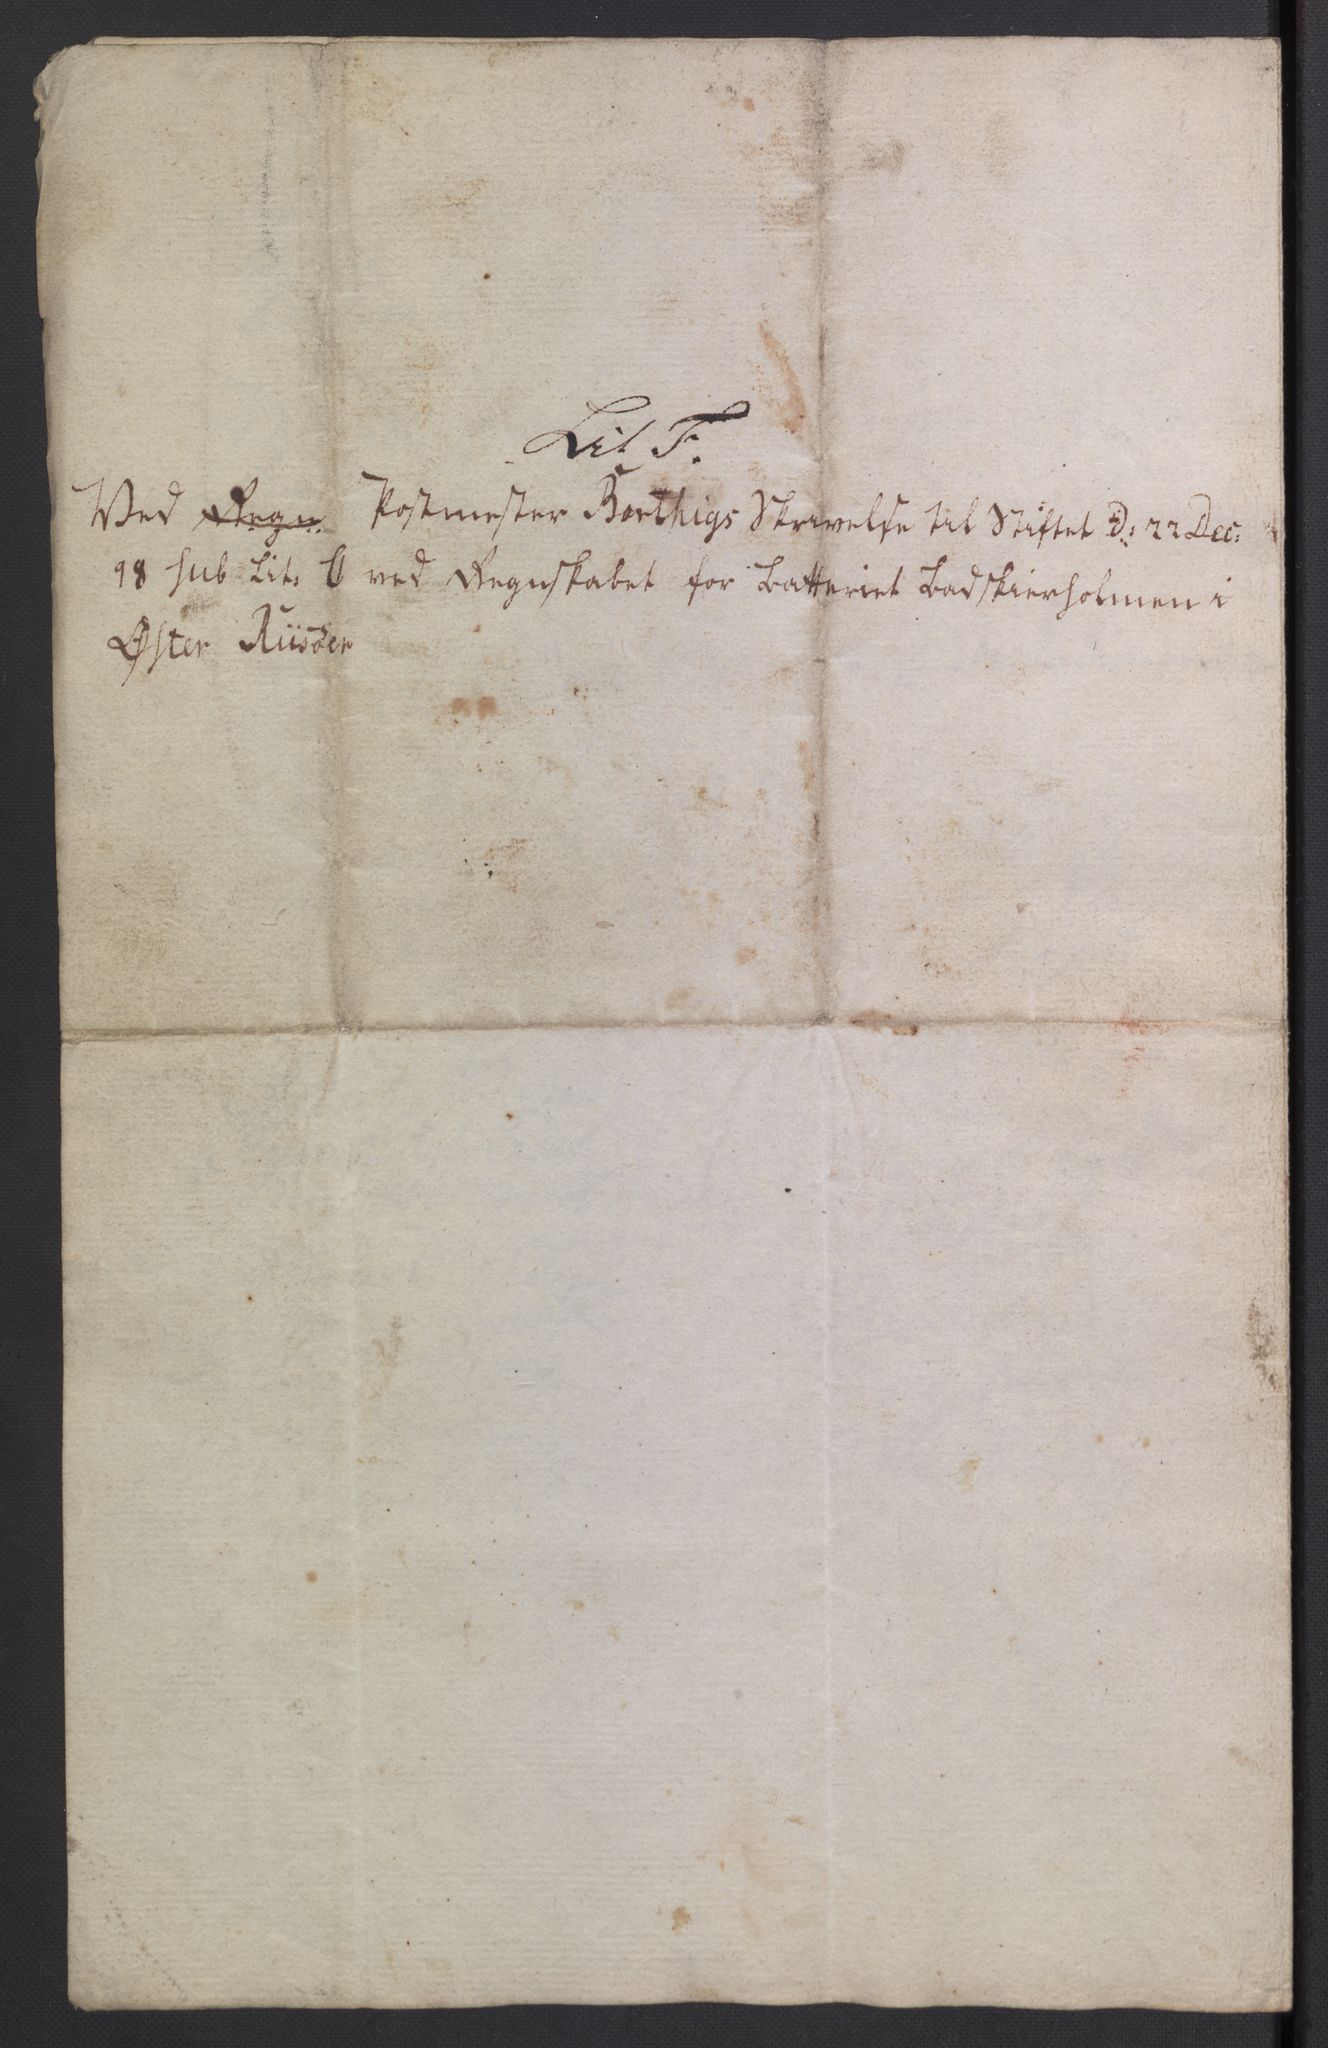 Lit F.
Ved Regn. Postmester Borthigs Skrivelse til Stiftet D: 22 Dec:
98 sub Lit: O ved Regnskabet for Batteriet Badskierholmen i
Øster Riisöer